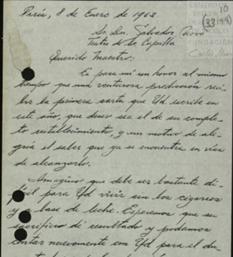 10
(33199)
París, 8 de Enero de 1962
Sr. Dn. Salvador Novo
Teatro de la Capilla
Querido Maestro:
Es para mí un honor al mismo
tiempo que una venturosa predicción recibir
la primera carta que Ud escribe en
este año, que deseo sea el de su completo
restablecimiento, y un motivo de alegría
el saber que ya se encuentra en vías
de alcanzarlo.
Imagino que debe ser bastante difícil
para Ud vivir sin los cigarros
y a base de leche. Esperemos que su
sacrificio de resultado y podamos
contar nuevamente con Ud para el